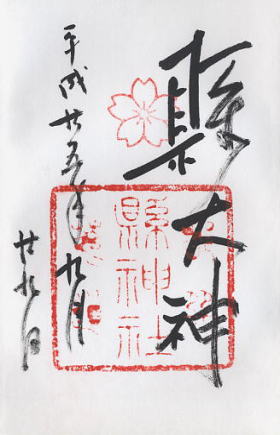 縣大神
縣神社
平成廿五年九月
廿九日